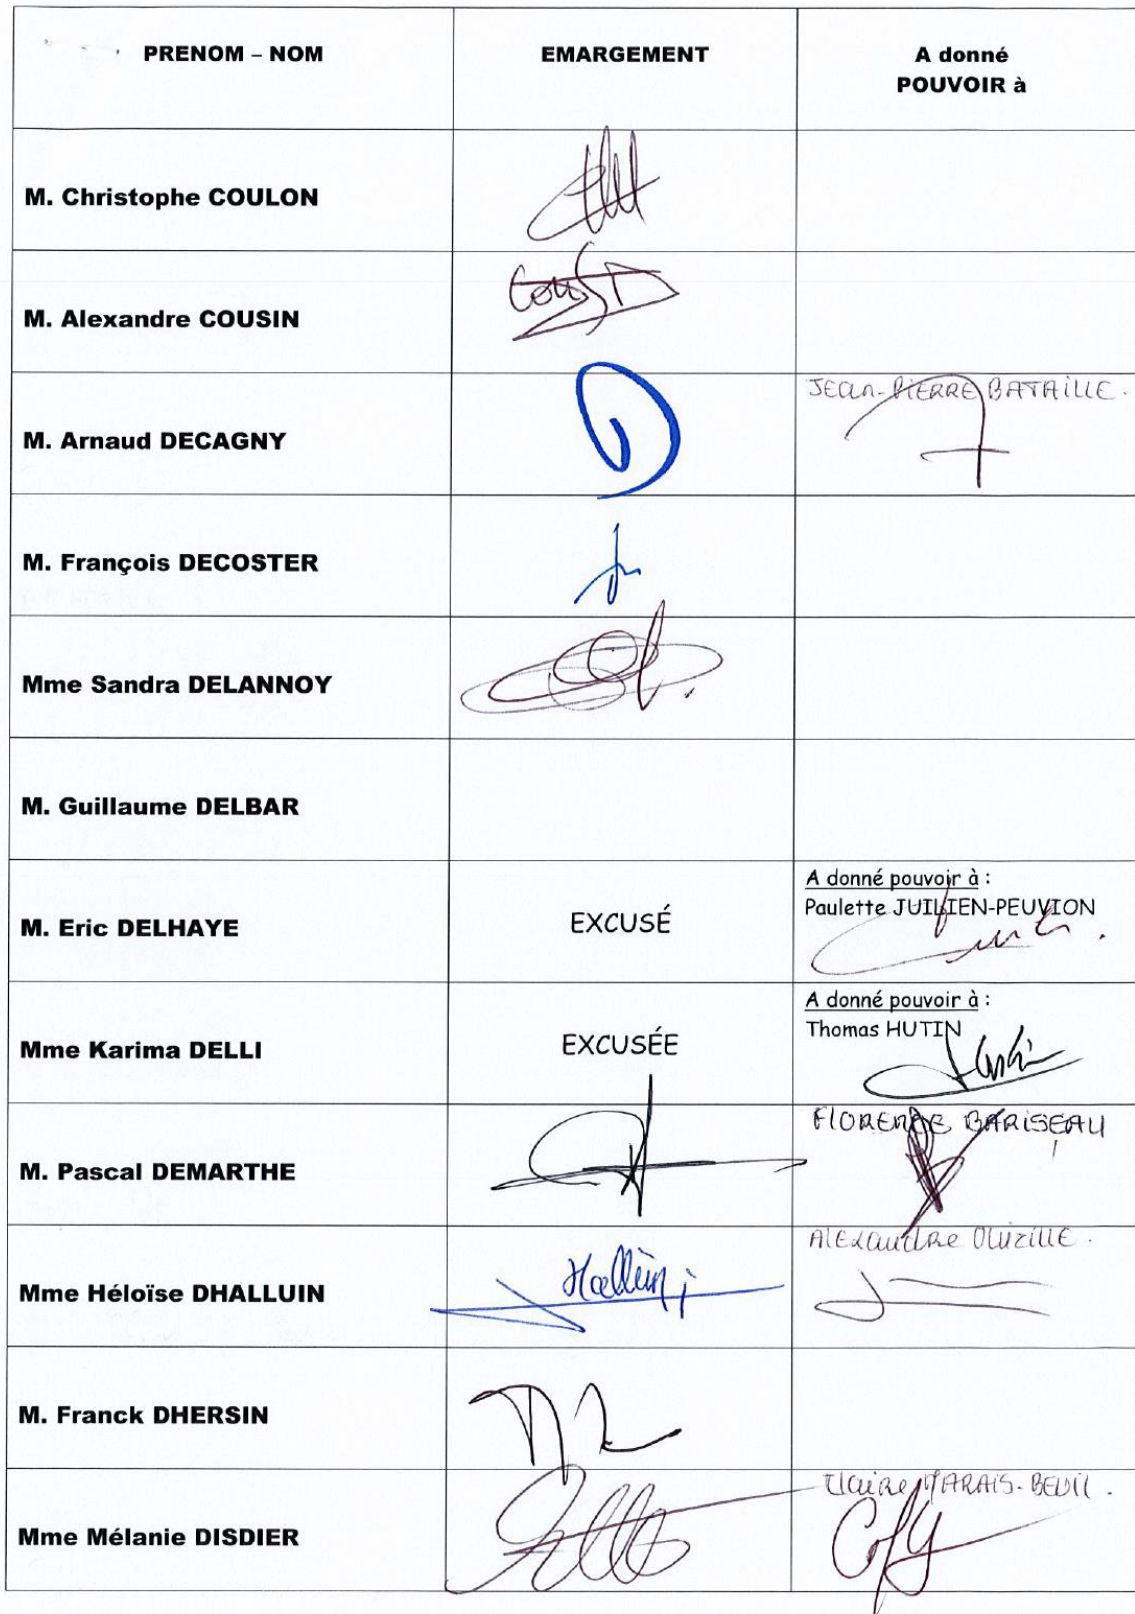 PRENOM – NOM
EMARGEMENT
A donné
POUVOIR à
M. Christophe COULON
M. Alexandre COUSIN
M. Arnaud DECAGNY
JEAN-PIERRE BATAILLE.
M. François DECOSTER
Mme Sandra DELANNOY
M. Guillaume DELBAR
M. Eric DELHAYE
EXCUSÉ
A donné pouvoir à :
Paulette JUILIEN-PEUVION
Mme Karima DELLI
EXCUSÉE
A donné pouvoir à :
Thomas HUTIN
M. Pascal DEMARTHE
FLORENCE BARISEAU
Mme Héloïse DHALLUIN
Halluin
Alexandre OUIZILLE.
M. Franck DHERSIN
Mme Mélanie DISDIER
Claire MARAIS-BEUIL.